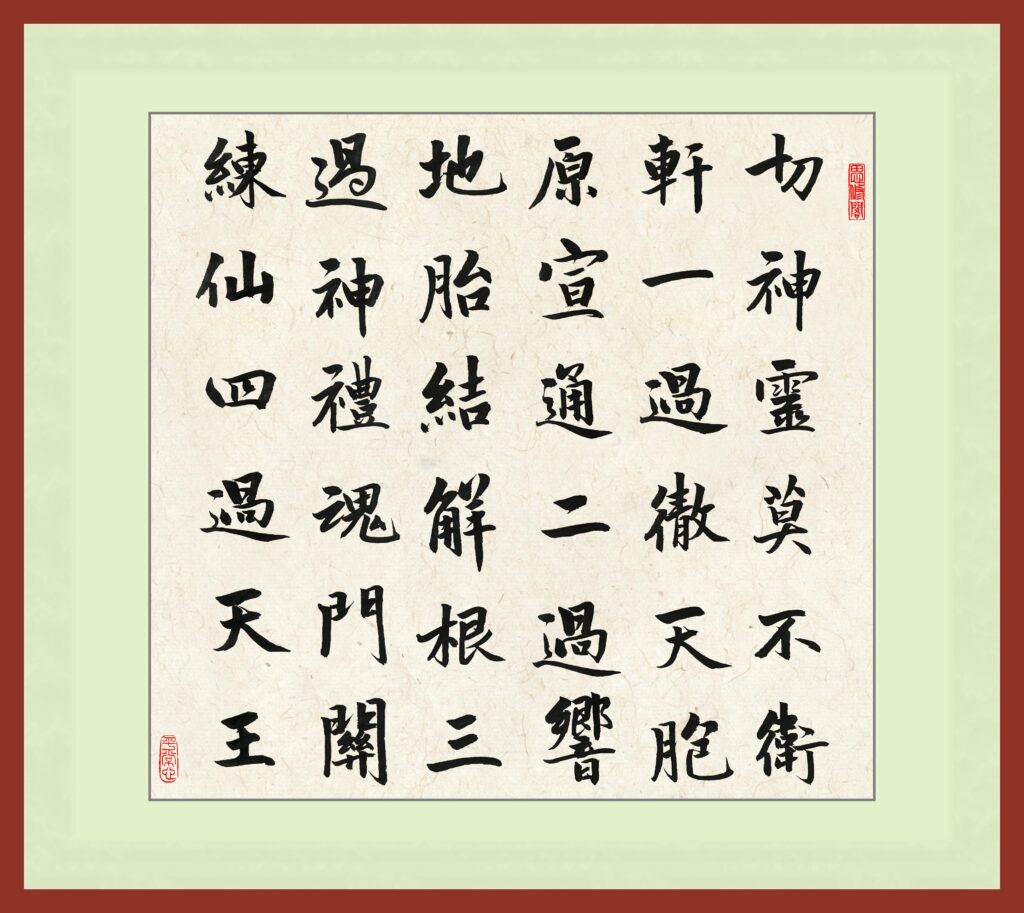 思修閣
切神靈莫不衛
軒一過徹天胞
原宣通二過響
地胎結解根三
過神禮魂門關
練仙四過天王
平常心